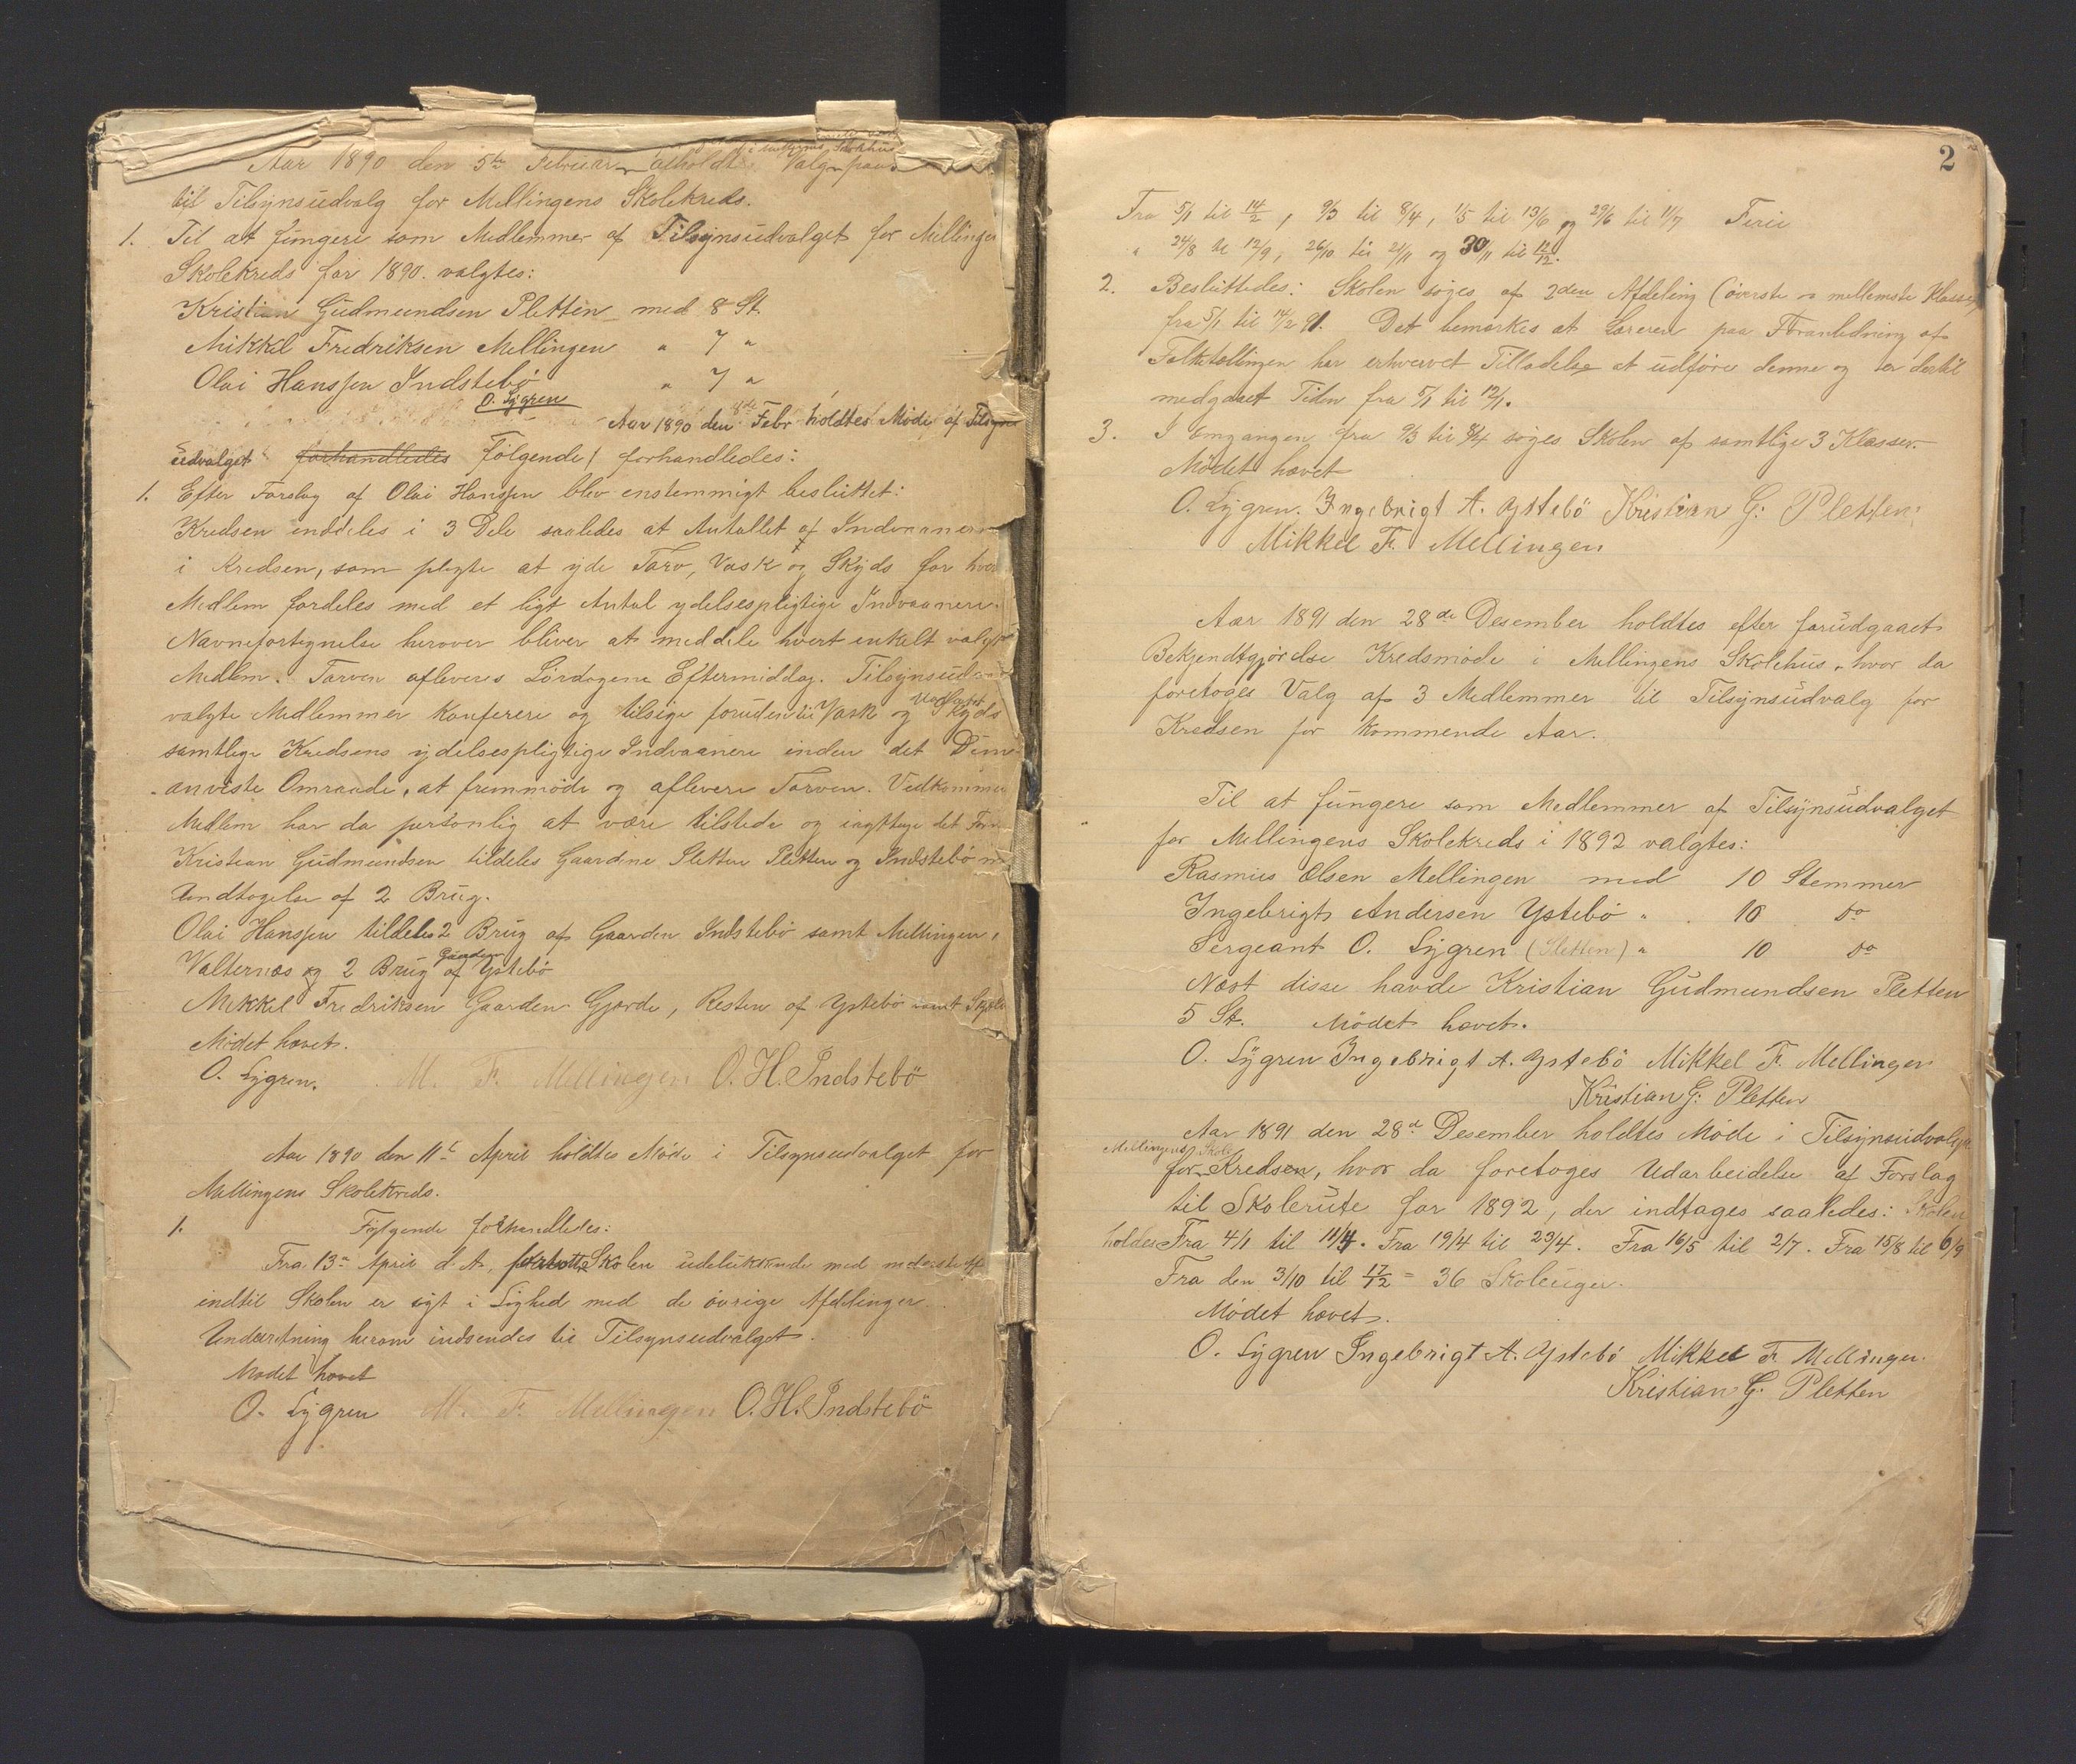 i Mellingens Skolehus
Aar 1890 den 5te Februar afholdt Valg paa
til Tilsynsudvalg for Mellingens Skolekreds.
1. Til at fungere som Medlemmer af Tilsynsudvalget for Mellingen
Skolekreds for 1890 valgtes:
Kristian Gudmundsen Pletten med 8 St.
Mikkel Fredriksen Mellingen " 7 "
Olai Hanssen Indstebö " 7 "
O. Lygren
Aar 1890 den 8de Febr holdtes Möde af Tilsyns
udvalget forhandledes Fölgende / forhandledes:
1. Efter Forslag af Olai Hanssen blev enstemmigt besluttet:
Kredsen inddeles i 3 Dele saaledes at Antallet af Indvaanere
i Kredsen, som pligte at yde Torv, Vask og Skyds for hver
Medlem fordeles med et ligt Antal ydelsespligtige Indvaanere.
Navnefortegnelse herover bliver at meddele hvert enkelt valgt
Medlem. Torven afleveres Lördagens Eftermiddag. Tilsynsud
valgte Medlemmer konferere og tilsige foruden til Vask og Skyds
samtlige Kredsens ydelsespligtige Indvaanere inden det Dem
anviste Omraade, at fremmöde og aflevere Torven. Vedkommen
Medlem har da personlig at være tilstede og iagttage det
Kristian Gudmundsen tildeles Gaardene Sletten Pletten og Indstebö m
Undtagelse af 2 Brug.
Olai Hanssen tildeles 2 Brug af Gaarden Indstebö samt Mellingen,
Valternæs og 2 Brug af Gaarden Ystebö
Mikkel Fredriksen Gaarden Gjerde, Resten af Ystebö samt
Mödet hævet.
O. Lygren. M. F. Mellingen O. H. Indstebö
Aar 1890 den 11te April holdtes Möde i Tilsynsudvalget for
Mellingens Skolekreds.
1. Fölgende forhandledes:
Fra 13de April d. A. Skolen udelukkende med nederste
indtil Skolen er sögt i Lighed med de övrige Afdelinger.
Underretning herom indsendes til Tilsynsudvalget.
Mödet hævet
O. Lygren M. F. Mellingen O. H. Indstebö
2
Fra 5/1 til 14/2, 9/3 til 8/4, 1/5 til 13/6 og 29/6 til 11/7 Ferie
" 24/8 til 12/9, 26/10 til 21/11 og 30/11 til 19/12.
2. Besluttedes: Skolen söges af 2den Afdeling (överste og mellemste Klasse)
fra 5/1 til 14/2 91. Det bemærkes at Læreren paa Foranledning af
Folketællingen har erhvervet Tilladelse at udföre denne og er dertil
medgaaet Tiden fra 5/1 til 12/1.
3. I Omgangen fra 9/3 til 8/4 söges Skolen af samtlige 3 Klasser.
Mödet hævet
O. Lygren. Ingebrigt A. Ystebö Kristian G. Pletten
Mikkel F. Mellingen
Aar 1891 den 28de Desember holdtes efter forudgaaet
Bekjendtgjörelse Kredsmöde i Mellingens Skolehus, hvor da
foretoges Valg af 3 Medlemmer til Tilsynsudvalg for
Kredsen for kommende Aar.
Til at fungere som Medlemmer af Tilsynsudvalget
for Mellingens Skolekreds i 1892 valgtes:
Rasmus Olsen Mellingen med 10 Stemmer
Ingebrigt Andersen Ystebö " 10 do
Sergeant O. Lygren (Sletten) " 10 do
Næst disse havde Kristian Gudmundsen Pletten
5 St. Mödet hævet.
O. Lygren Ingebrigt A. Ystebö Mikkel F. Mellingen
Kristian G. Pletten
Aar 1891 den 28de Desember holdtes Möde i Tilsynsudvalget
for Mellingens Skole Kredsen, hvor da foretoges Udarbeidelse af Forslag
til Skolerute for 1892, der indtages saaledes: Skolen
holdes Fra 4/1 til 11/4. Fra 19/4 til 23/4. Fra 16/5 til 2/7. Fra 15/8 til 6/9
Fra den 3/10 til 17/12 = 36 Skoleuger.
Mödet hævet.
O. Lygren Ingebrigt A. Ystebö Mikkel F. Mellingen.
Kristian G. Pletten